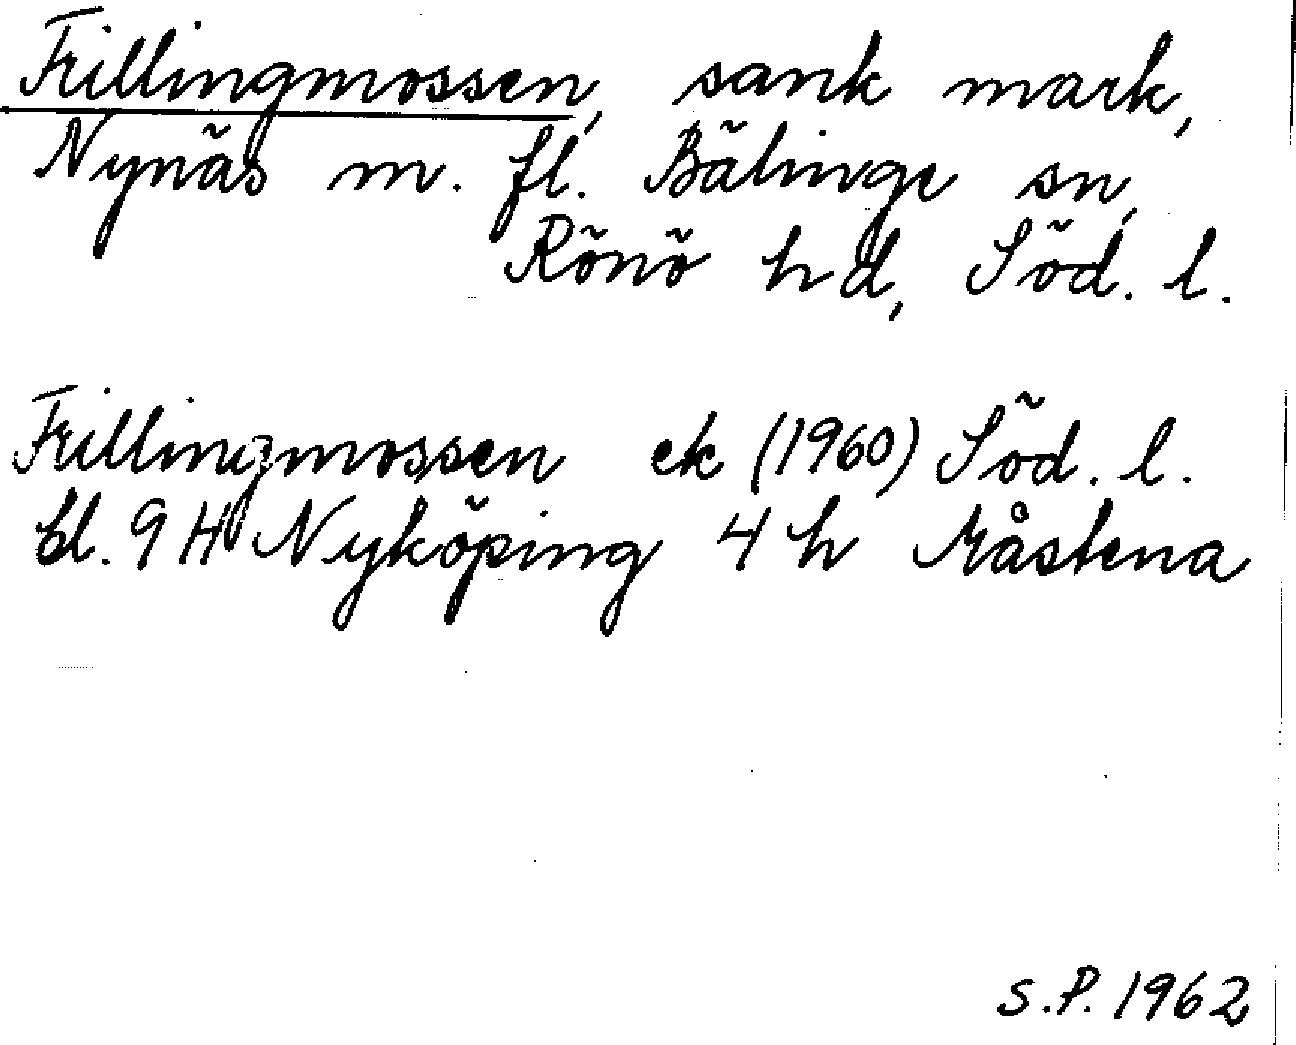 Trillingmossen, sank mark,
Nynäs m. fl. Bälinge sn,
Rönö hd, Söd. l.
Trillingmossen ek (1960) Söd. l.
bl. 9 H Nyköping 4 h Måstena
S.P. 1962